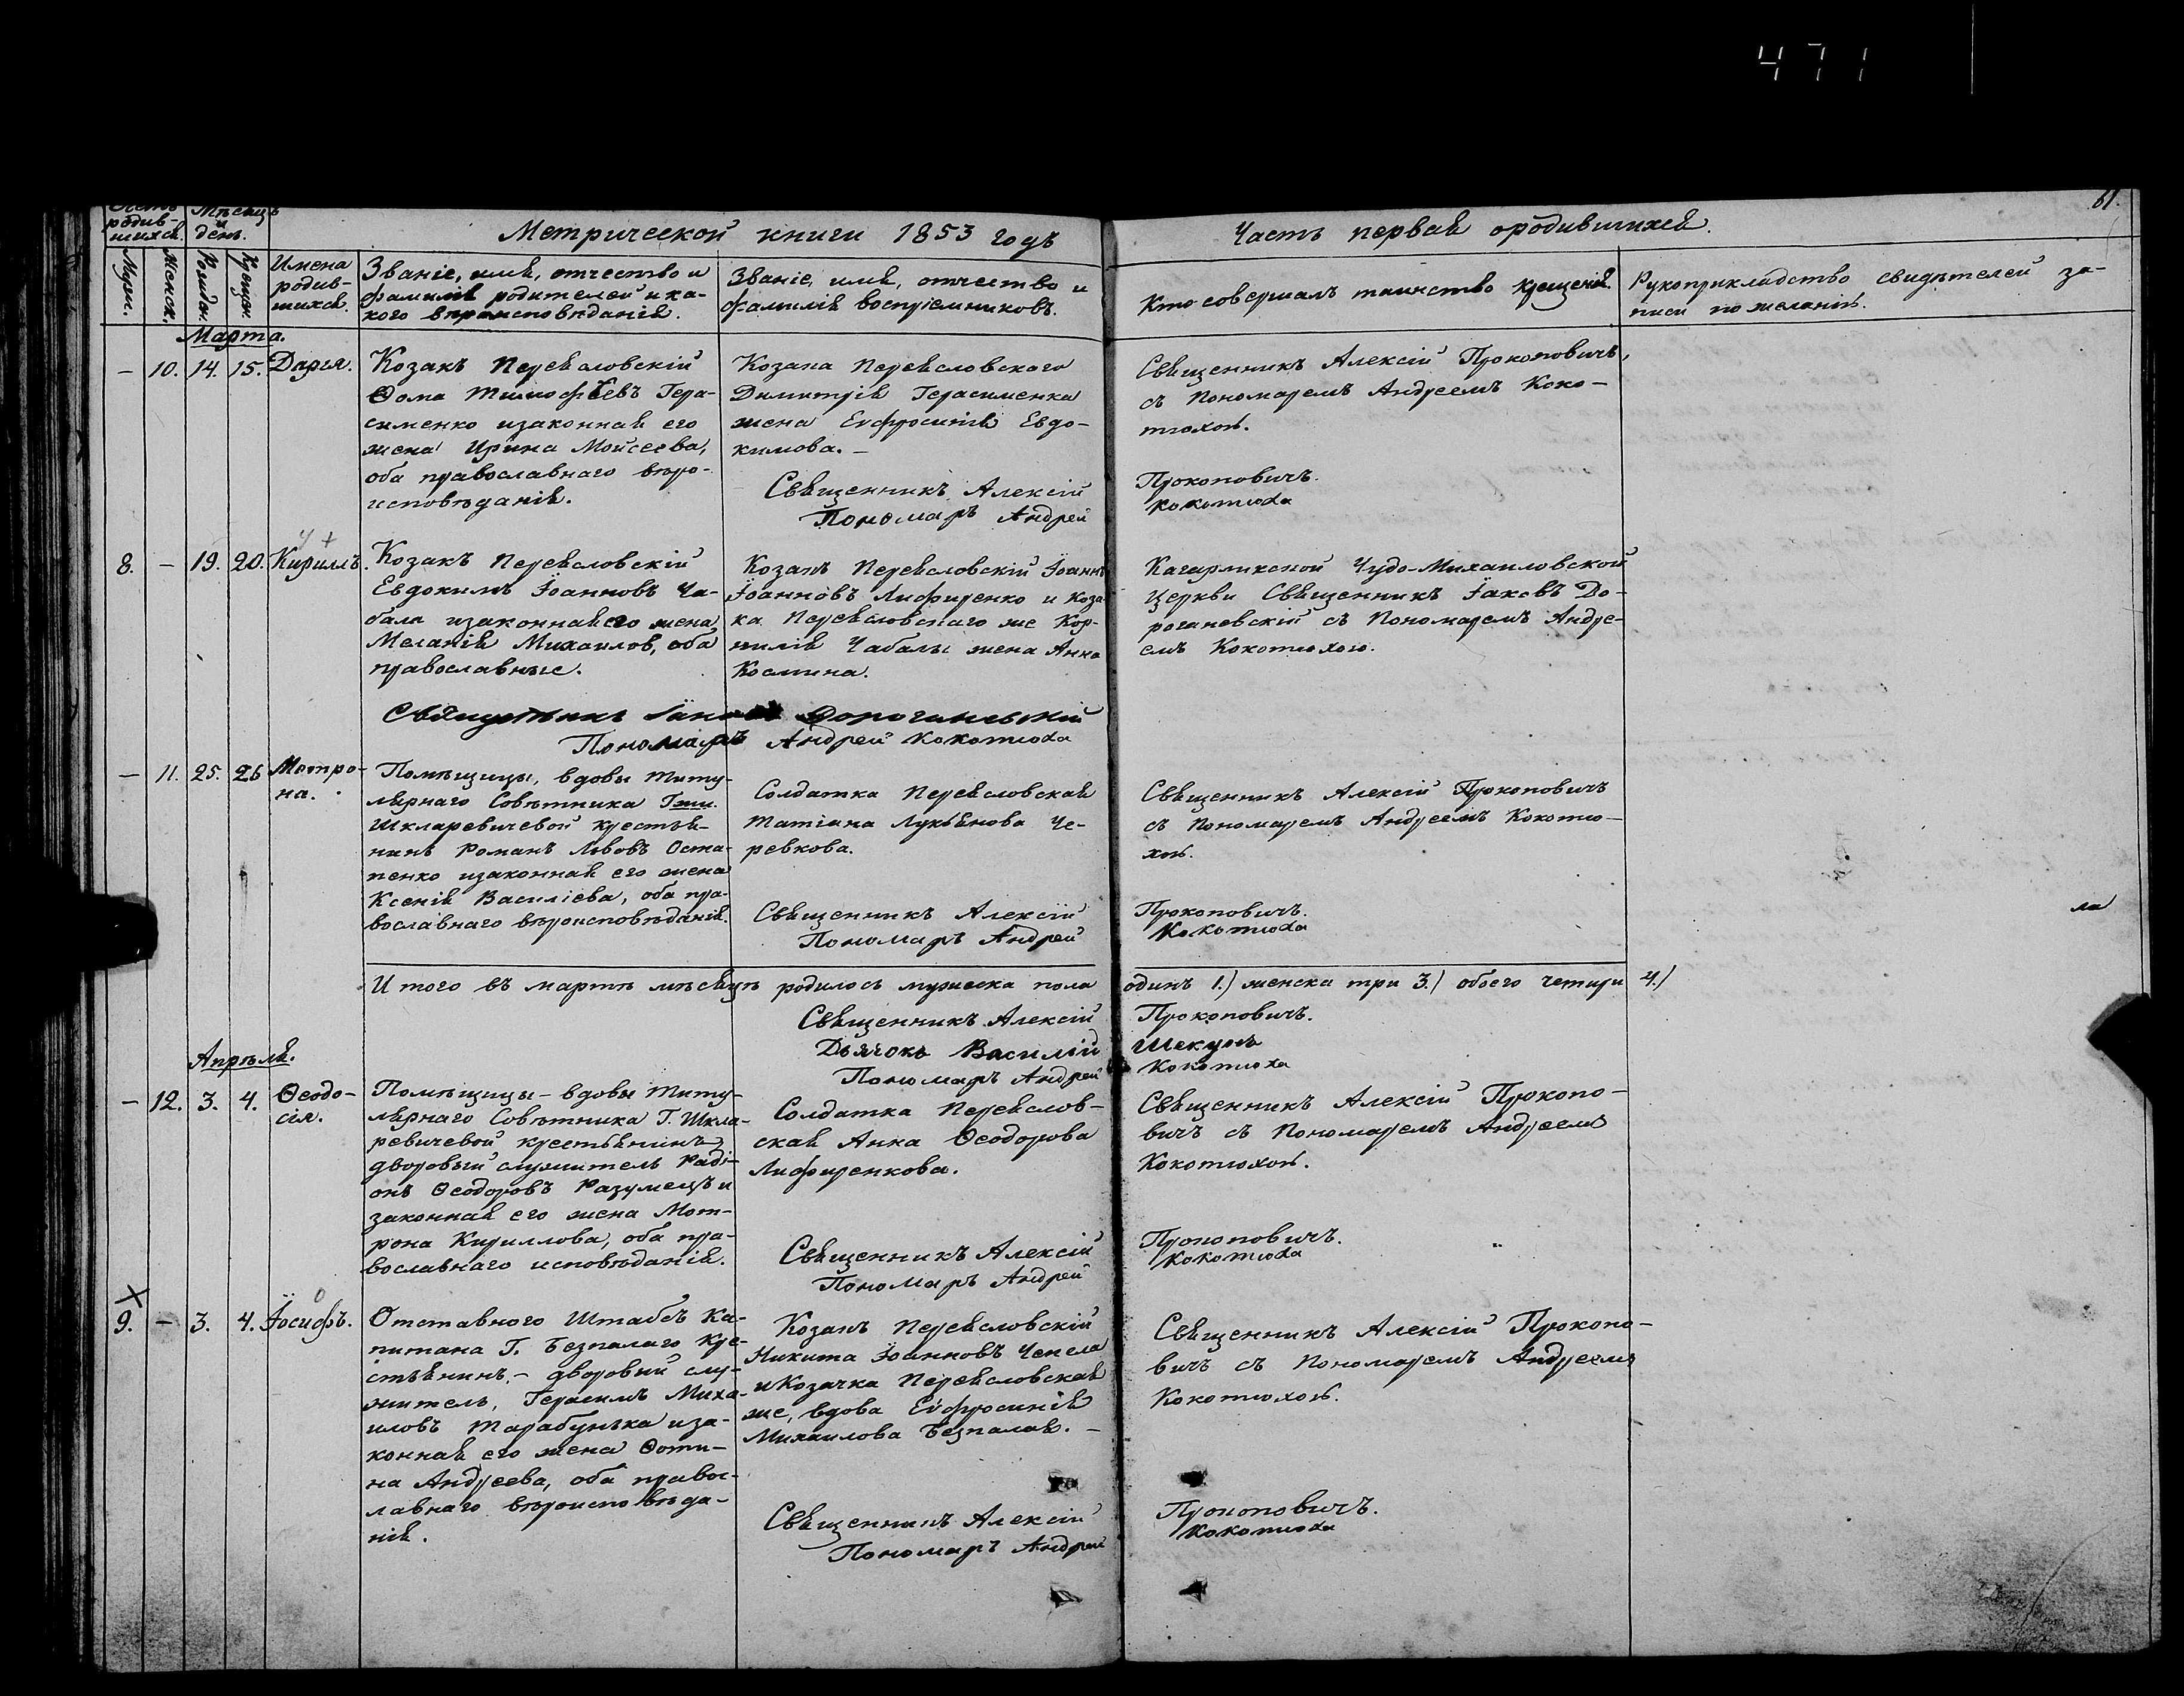 471
61.
Метрической книги 1853 годъ
Часть первая о родившихся.
Счетъ родив-
шихся.
Мѣсяцъ
и
день.
Мужск.
Женск.
Рожден.
Крещен.
Имена
родив-
шихся.
Званіе, имя, отчество и
фамилія родителей и ка-
кого вѣроисповѣданія.
Званіе, имя, отчество и
фамилія воспріемниковъ.
Кто совершалъ таинство крещенія.
Рукоприкладство свидѣтелей за-
писи по желанію.
Марта.
— 10. 14. 15. Дарія.
Козакъ Переяловскій
Ѳома Тимофѣевъ Гера-
сименко и законная его
жена Ирина Мойсеева,
оба православнаго вѣро-
исповѣданія.
Козака Переясловского
Димитрія Герасименка
жена Еѵфросинія Евдо-
кимова. —
Священникъ Алексій
Пономаръ Андрей
Священникъ Алексій Прокоповичъ,
съ Пономаремъ Андреемъ Коко-
тюхой.
Прокоповичъ.
Кокотюха
8. — 19. 20. Кириллъ.
Козакъ Переясловскій
Евдокимъ Іоанновъ Ча-
бала и законная его жена
Меланія Михаилов, оба
православные.
Козакъ Переясловскій Іоаннъ
Іоанновъ Лифиренко и Коза-
ка Переясловскаго же Кор-
нилія Чабалы жена Анна
Космина.
Кагарликской Чудо-Михаиловской
Церкви Священникъ Іаковъ До-
рогановскій съ Пономаремъ Андре-
емъ Кокотюхою.
Священникъ Іаковъ Дорогановскій
Пономаръ Андрей Кокотюха
— 11. 25. 26 Мотро-
на.
Помѣщицы, вдовы Титу-
лярнаго Совѣтника Гжи.
Шкляревичевой крестья-
нинъ Романъ Львовъ Оста-
пенко и законная его жена
Ксенія Василіева, оба пра-
вославнаго вѣроисповѣданія.
Солдатка Переясловская
Татіана Лукьянова Че-
ревкова.
Священникъ Алексій
Пономаръ Андрей
Священникъ Алексій Прокоповичъ
съ Пономаремъ Андреемъ Кокотю-
хой.
Прокоповичъ.
Кокотюха
ла
И того въ мартѣ мѣсяцѣ родилось мужеска пола одинъ 1.) женска три 3.) обоего четыри 4.)
Священникъ Алексій Прокоповичъ.
Дьячокъ Василій Шекунъ
Пономаръ Андрей Кокотюха
Апрѣля.
— 12. 3. 4. Ѳеодо-
сія.
Помѣщицы — вдовы Титу-
лярнаго Совѣтника Г. Шкля-
ревичевой крестьянинъ,
дворовый служитель Раді-
онъ Ѳеодоровъ Разумецъ и
законная его жена Мот-
рона Кириллова, оба пра-
вославнаго исповѣданія.
Солдатка Переяслов-
ская Анна Ѳеодорова
Лифиренкова.
Священникъ Алексій
Пономаръ Андрей
Священникъ Алексій Прокопо-
вичъ съ Пономаремъ Андреемъ
Кокотюхой.
Прокоповичъ.
Кокотюха
9. — 3. 4. Іосифъ.
Отставного Штабсъ Ка-
питана Г. Безпалаго кре-
стьянинъ, — дворовий слу-
житель, Герасимъ Миха-
иловъ Тарабунька и за-
конная его жена Ѳоти-
на Андреева, оба правос-
лавнаго вѣроисповѣда-
нія.
Козакъ Переясловскій
Никита Іоанновъ Чепела
и Козачка Переясловская
же, вдова Еѵфросинія
Михаилова Безпалая. —
Священникъ Алексій
Пономаръ Андрей
Священникъ Алексій Прокопо-
вичъ съ Пономаремъ Андреемъ
Кокотюхой.
Прокоповичъ.
Кокотюха